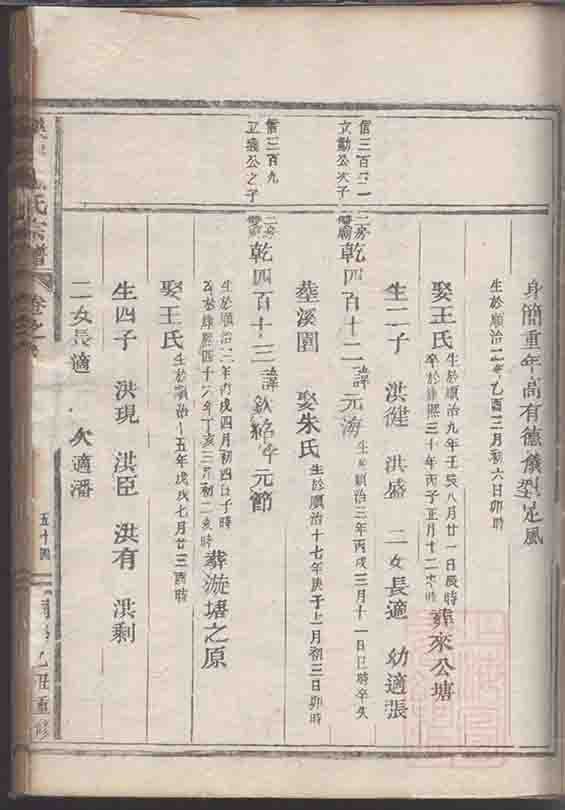 身簡重年高有德儀型足風
生於順治二年乙酉三月初六日卯時
娶王氏
生於順治九年壬癸八月廿一日辰時
卒於康熙三十年丙子正月十二亥時
葬來公塘
生二子 洪健 洪盛 二女長適 幼適張
信三百六二
立勳公次子
二房
乾四百十二諱元海
生於順治三年丙戌三月十一日巳時卒失
葬溪園 娶朱氏
生於順治十七年庚子七月初三日卯時
信三百九
立義公之子
二房
乾四百十三諱欽 字元節
生於順治三年丙戌四月初四日子時
康熙四十六年丁亥三月初二亥時
葬漩塘之原
娶王氏
生於順治十五年戊戌七月廿三酉時
生四子 洪現 洪臣 洪有 洪剩
二女長適 次適潘
氏宗譜 卷之
五十四
重修